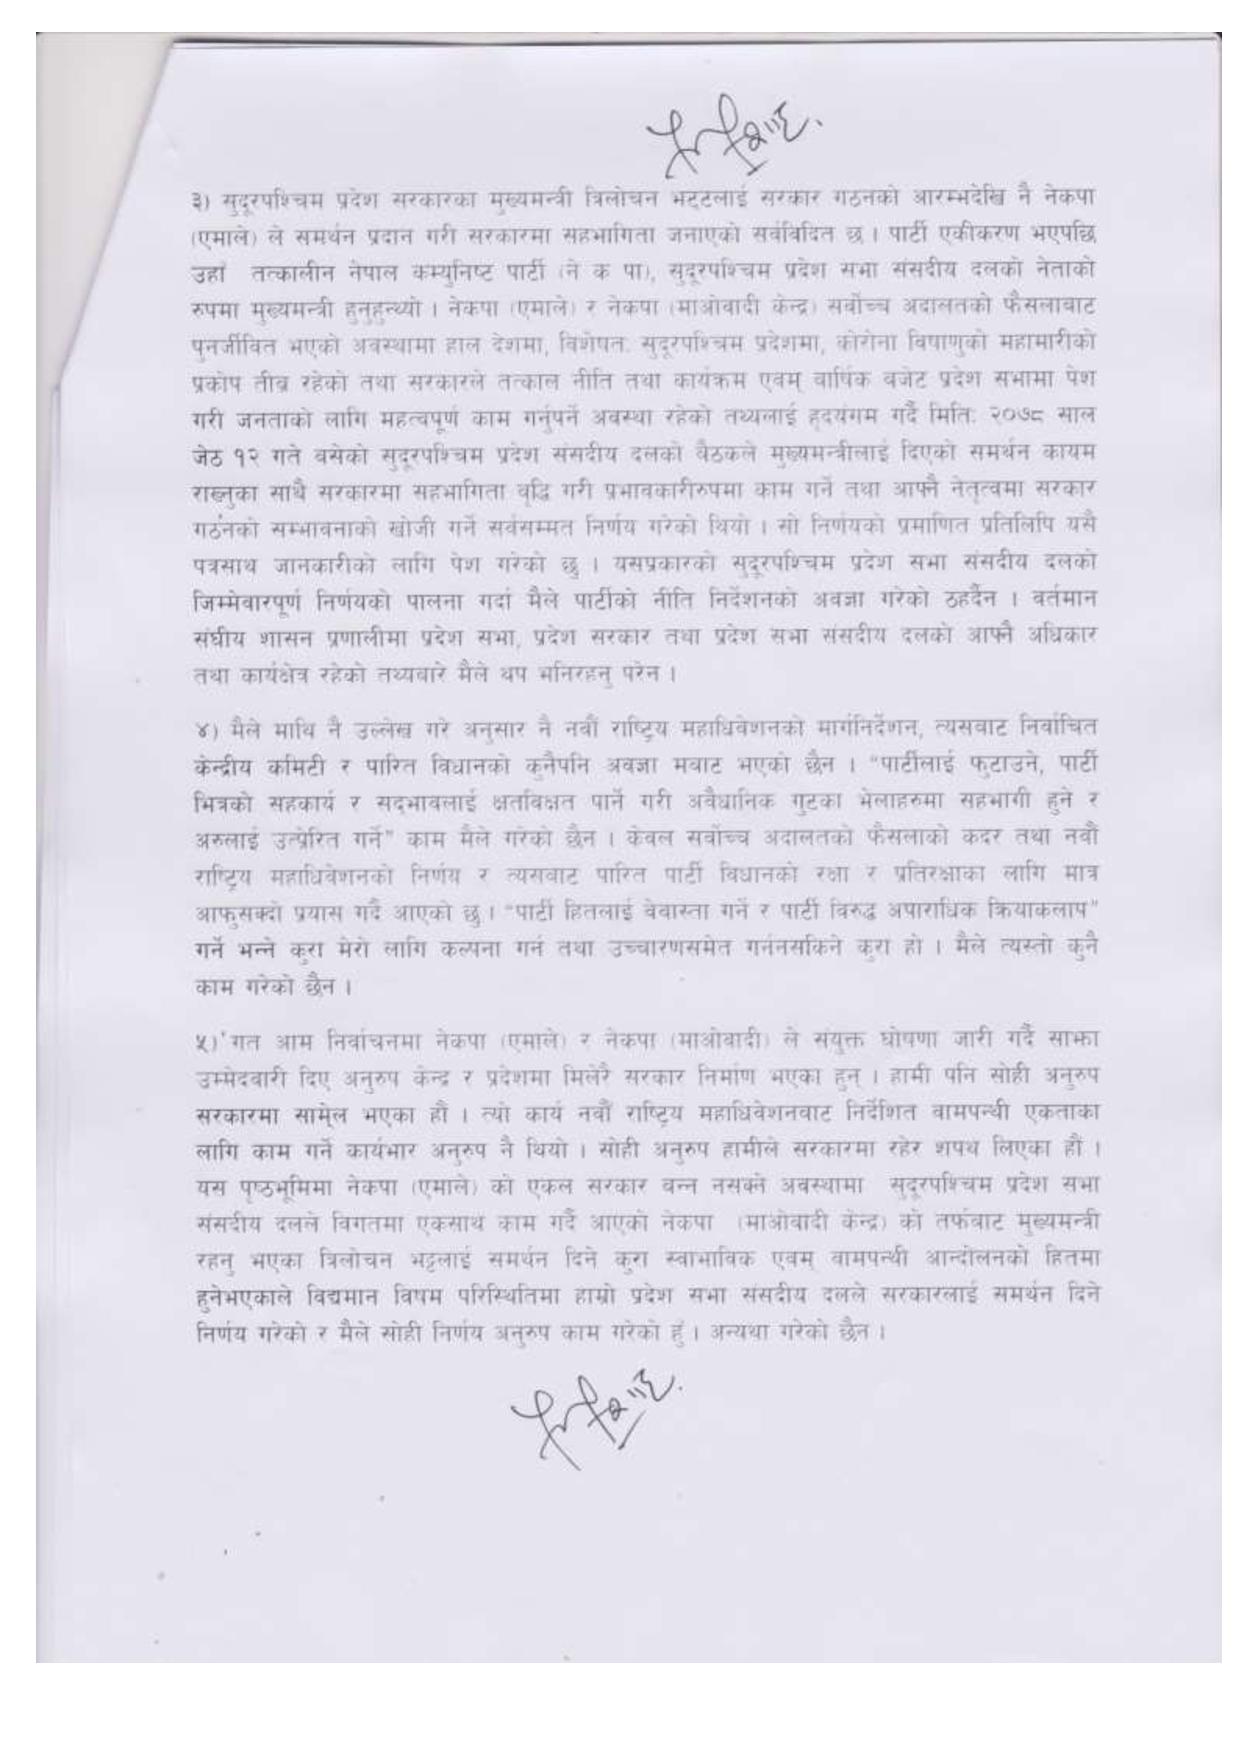 ३) सुदूरपश्चिम प्रदेश सरकारका मुख्यमन्त्री त्रिलोचन भट्टलाई सरकार गठनको आरम्भदेखि नै नेकपा
(एमाले) ले समर्थन प्रदान गरी सरकारमा सहभागिता जनाएको सर्वविदित छ । पार्टी एकीकरण भएपछि
उहाँ तत्कालीन नेपाल कम्युनिष्ट पार्टी (ने क पा), सुदूरपश्चिम प्रदेश सभा संसदीय दलको नेताको
रुपमा मुख्यमन्त्री हुनुहुन्थ्यो । नेकपा (एमाले) र नेकपा (माओवादी केन्द्र) सर्वोच्च अदालतको फैसलाबाट
पुनर्जीवित भएको अवस्थामा हाल देशमा, विशेषत: सुदूरपश्चिम प्रदेशमा, कोरोना विषाणुको महामारीको
प्रकोप तीब्र रहेको तथा सरकारले तत्काल नीति तथा कार्यक्रम एवम् वार्षिक बजेट प्रदेश सभामा पेश
गरी जनताको लागि महत्वपूर्ण काम गर्नुपर्ने अवस्था रहेको तथ्यलाई हृदयंगम गर्दै मिति: २०७८ साल
जेठ १२ गते बसेको सुदूरपश्चिम प्रदेश संसदीय दलको बैठकले मुख्यमन्त्रीलाई दिएको समर्थन कायम
राख्नुका साथै सरकारमा सहभागिता वृद्धि गरी प्रभावकारीरुपमा काम गर्ने तथा आफ्नै नेतृत्वमा सरकार
गठनको सम्भावनाको खोजी गर्ने सर्वसम्मत निर्णय गरेको थियो । सो निर्णयको प्रमाणित प्रतिलिपि यसै
पत्रसाथ जानकारीको लागि पेश गरेको छु । यसप्रकारको सुदूरपश्चिम प्रदेश सभा संसदीय दलको
जिम्मेवारपूर्ण निर्णयको पालना गर्दा मैले पार्टीको नीति निर्देशनको अवज्ञा गरेको ठहर्दैन । वर्तमान
संघीय शासन प्रणालीमा प्रदेश सभा, प्रदेश सरकार तथा प्रदेश सभा संसदीय दलको आफ्नै अधिकार
तथा कार्यक्षेत्र रहेको तथ्यबारे मैले थप भनिरहनु परेन ।
४) मैले माथि नै उल्लेख गरे अनुसार नै नवौं राष्ट्रिय महाधिवेशनको मार्गनिर्देशन, त्यसबाट निर्वाचित
केन्द्रीय कमिटी र पारित विधानको कुनैपनि अवज्ञा मबाट भएको छैन । “पार्टीलाई फुटाउने, पार्टी
भित्रको सहकार्य र सद्भावलाई क्षतविक्षत पार्ने गरी अवैधानिक गुटका भेलाहरुमा सहभागी हुने र
अरुलाई उत्प्रेरित गर्ने” काम मैले गरेको छैन । केवल सर्वोच्च अदालतको फैसलाको कदर तथा नवौं
राष्ट्रिय महाधिवेशनको निर्णय र त्यसबाट पारित पार्टी विधानको रक्षा र प्रतिरक्षाका लागि मात्र
आफुसक्दो प्रयास गर्दै आएको छु । “पार्टी हितलाई बेवास्ता गर्ने र पार्टी विरुद्ध अपाराधिक क्रियाकलाप”
गर्ने भन्ने कुरा मेरो लागि कल्पना गर्न तथा उच्चारणसमेत गर्ननसकिने कुरा हो । मैले त्यस्तो कुनै
काम गरेको छैन ।
५) गत आम निर्वाचनमा नेकपा (एमाले) र नेकपा (माओवादी) ले संयुक्त घोषणा जारी गर्दै साझा
उम्मेदवारी दिए अनुरुप केन्द्र र प्रदेशमा मिलेरै सरकार निर्माण भएका हुन् । हामी पनि सोही अनुरुप
सरकारमा सामेल भएका हौं । त्यो कार्य नवौं राष्ट्रिय महाधिवेशनबाट निर्देशित वामपन्थी एकताका
लागि काम गर्ने कार्यभार अनुरुप नै थियो । सोही अनुरुप हामीले सरकारमा रहेर शपथ लिएका हौं ।
यस पृष्ठभूमिमा नेकपा (एमाले) को एकल सरकार बन्न नसक्ने अवस्थामा सुदूरपश्चिम प्रदेश सभा
संसदीय दलले विगतमा एकसाथ काम गर्दै आएको नेकपा (माओवादी केन्द्र) को तर्फबाट मुख्यमन्त्री
रहनु भएका त्रिलोचन भट्टलाई समर्थन दिने कुरा स्वाभाविक एवम् वामपन्थी आन्दोलनको हितमा
हुनेभएकाले विद्यमान विषम परिस्थितिमा हाम्रो प्रदेश सभा संसदीय दलले सरकारलाई समर्थन दिने
निर्णय गरेको र मैले सोही निर्णय अनुरुप काम गरेको हुं । अन्यथा गरेको छैन ।